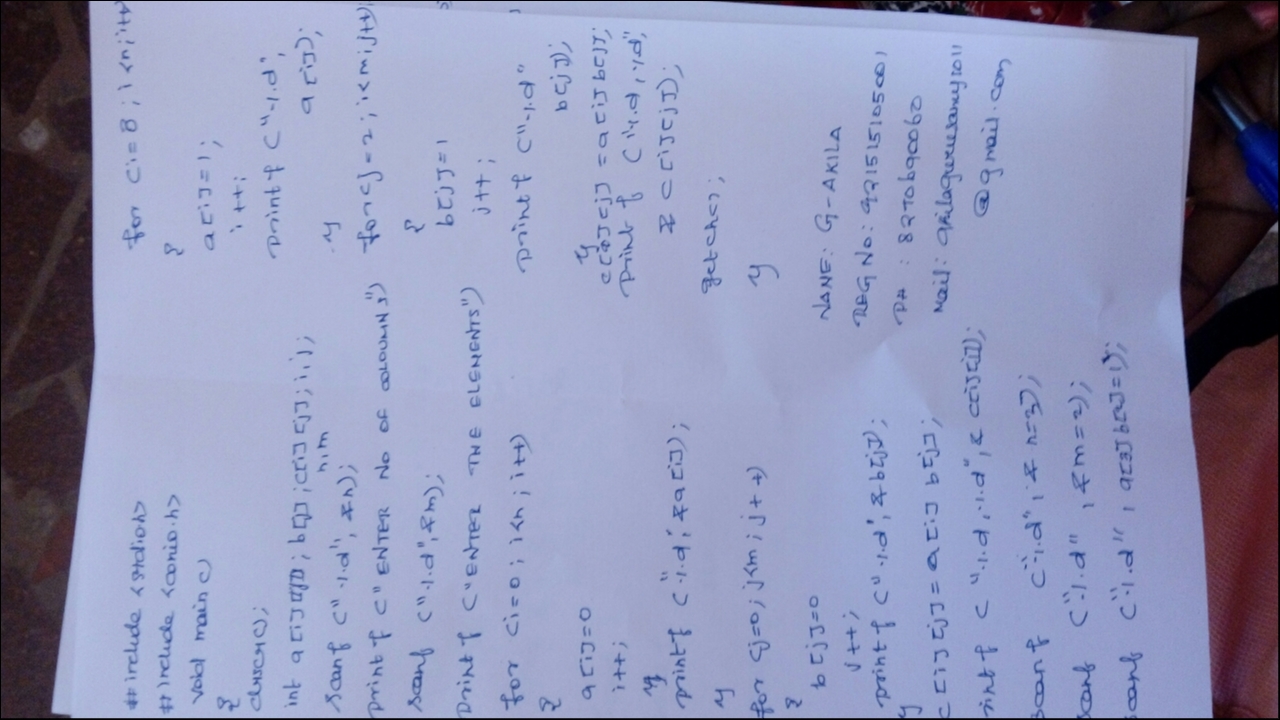 #include <stdio.h>
#include <conio.h>
void main ()
{
clrscr();
int a[i]; b[j]; c[i][j]; i, j;
n, m
scanf ("%d", &n);
printf ("ENTER NO OF COLOUMNS")
scanf ("%d", &m);
printf ("ENTER THE ELEMENTS")
for (i=0; i<n; i++)
{
a[i]=0
i++;
}
printf ("%d", &a[i]);
}
for (j=0; j<m; j++)
{
b[j]=0
j++;
printf ("%d", &b[j]);
}
c[i][j]=a[i] b[j];
printf ("%d, %d", & c[i][j]);
scanf ("%d", & n=3);
scanf ("%d", & m=2);
scanf ("%d", a[3] b[2]=1);
for (i=8; i<n; i++
{
a[i]=1;
i++;
printf ("%d",
a[i]);
}
for (j=2; i<m; j++)
{
b[j]=1
j++;
printf ("%d"
b[j]);
}
c[i][j]=a[i] b[j];
printf ("%d, %d",
& c[i][j]);
getch();
}
NAME: G-AKILA
REG NO: 921515105001
PH : 8270690060
Mail:
@gmail.com